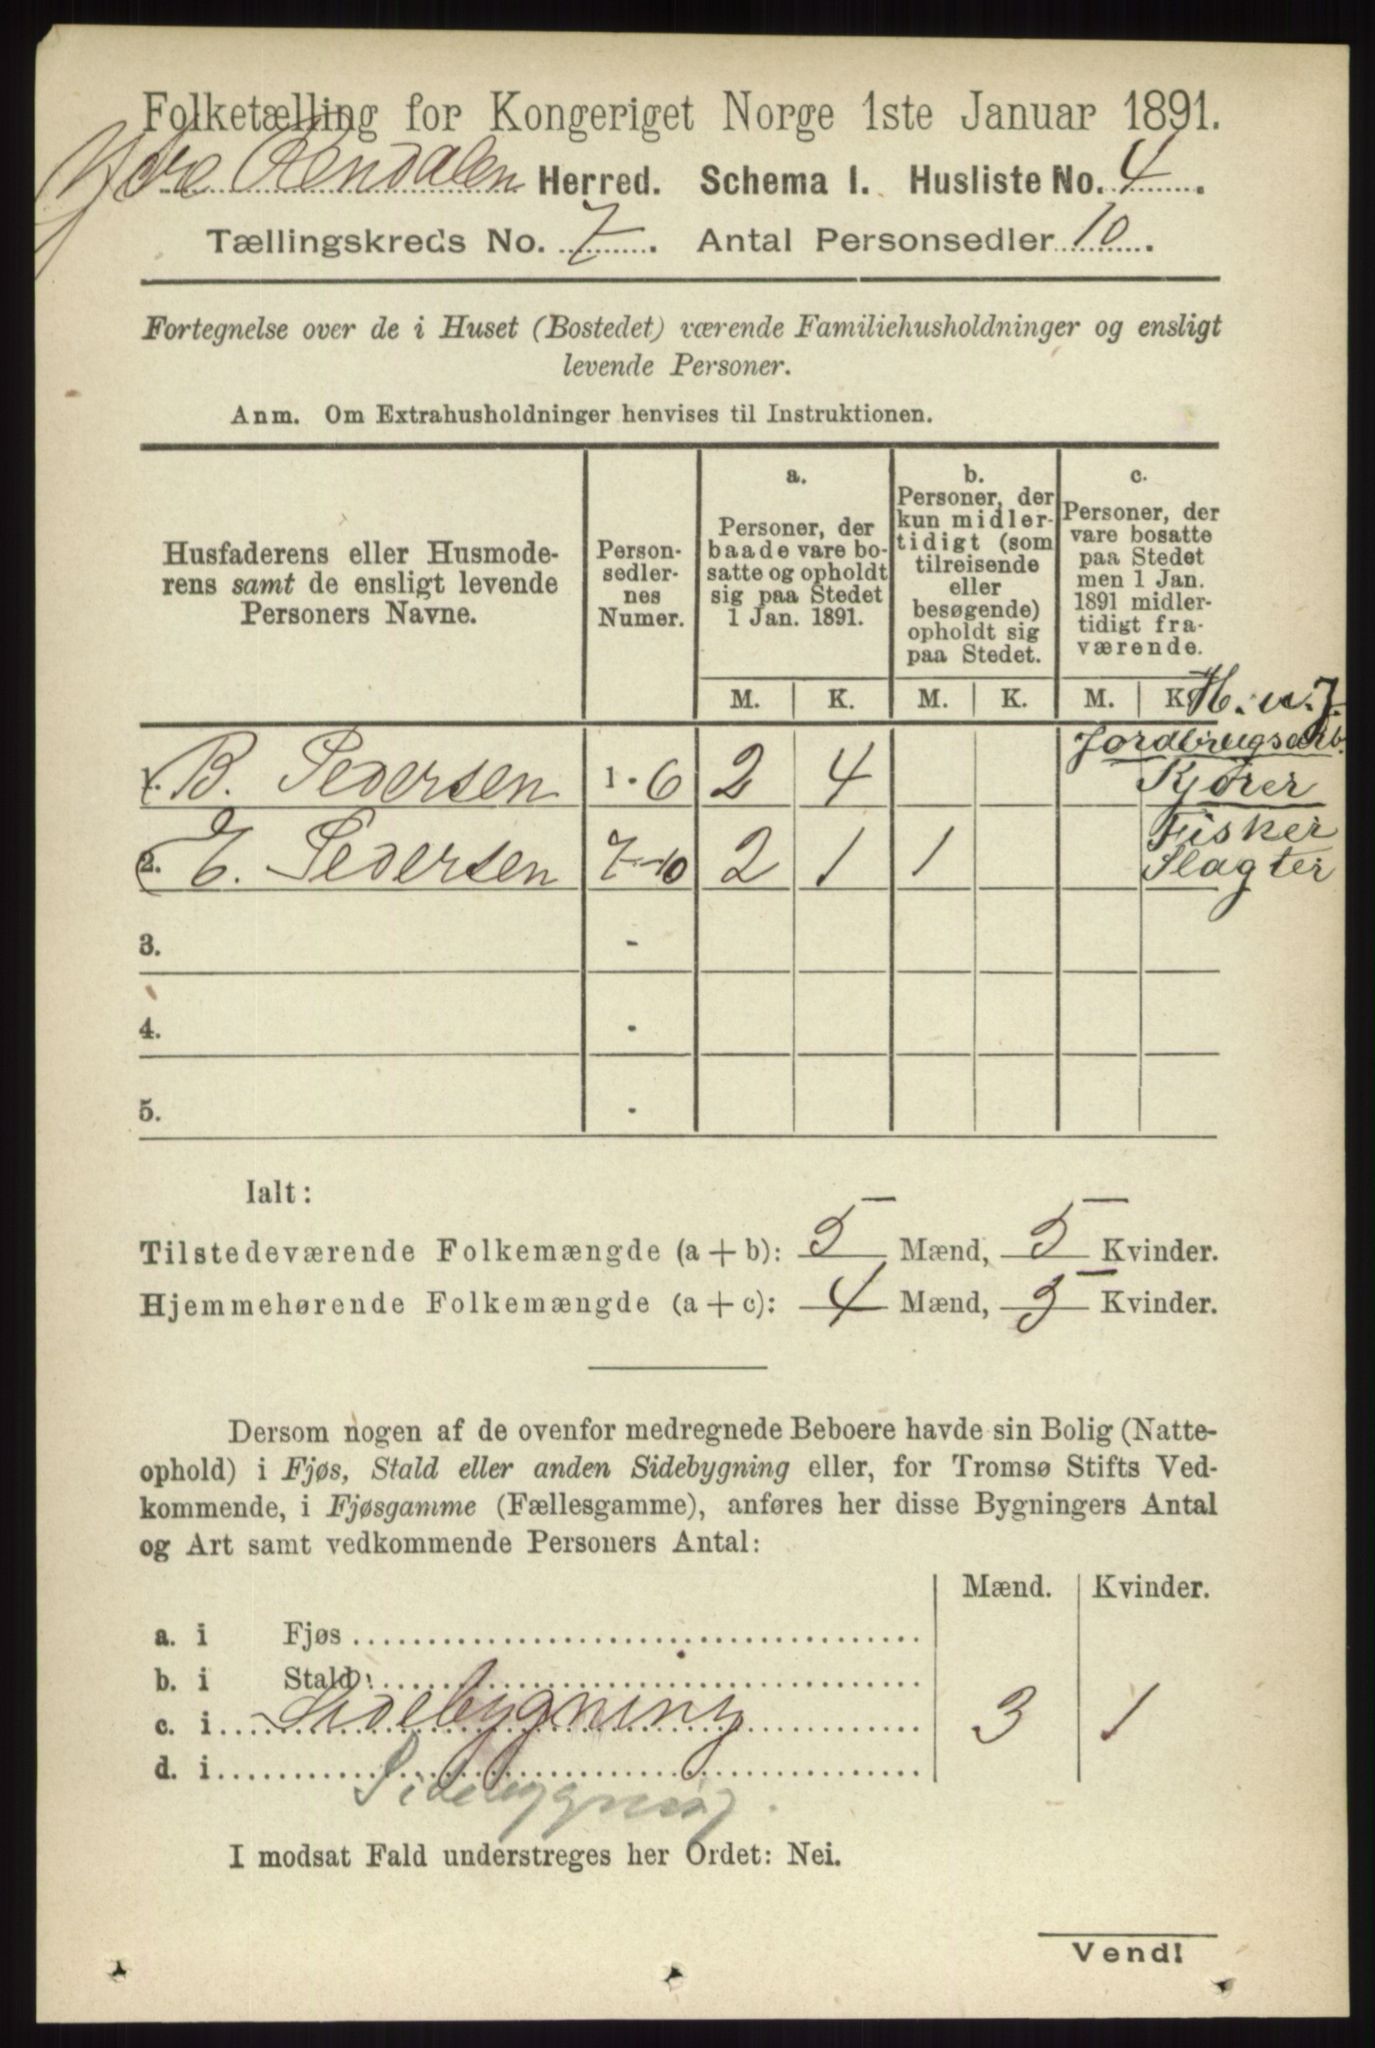 Folketælling for Kongeriget Norge 1ste Januar 1891.
Ytre Rendalen Herred. Schema I. Husliste No. 4.
Tællingskreds No. 7. Antal Personsedler 10.
Fortegnelse over de i Huset (Bostedet) værende Familiehusholdninger og ensligt
levende Personer.
Anm. Om Extrahusholdninger henvises til Instruktionen.
Husfaderens eller Husmode-
rens samt de ensligt levende
Personers Navne.
Person-
sedler-
nes
Numer.
a.
Personer, der
baade vare bo-
satte og opholdt
sig paa Stedet
1 Jan. 1891.
b.
Personer, der
kun midler-
tidigt (som
tilreisende
eller
besøgende)
opholdt sig
paa Stedet.
c.
Personer, der
vare bosatte
paa Stedet
men 1 Jan.
1891 midler-
tidigt fra-
værende.
M. K. M. K. M. K.
H. u. J.
Jordbrugsarb.
1. B. Pedersen 1-6 2 4
Kjører
Fisker
2. E. Pedersen 7-10 2 1 1
Slagter
3. -
4. -
5. -
Ialt:
Tilstedeværende Folkemængde (a + b): 5 Mænd, 5 Kvinder.
Hjemmehørende Folkemængde (a + c): 4 Mænd, 5 Kvinder.
Dersom nogen af de ovenfor medregnede Beboere havde sin Bolig (Natte-
ophold) i Fjøs, Stald eller anden Sidebygning eller, for Tromsø Stifts Ved-
kommende, i Fjøsgamme (Fællesgamme), anføres her disse Bygningers Antal
og Art samt vedkommende Personers Antal:
Mænd. Kvinder.
a. i Fjøs
b. i Stald
c. i Sidebygning 3 1
d. i
Sidebygning.
I modsat Fald understreges her Ordet: Nei.
Vend!